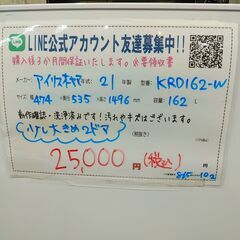 LINE公式アカウント友達募集中!!
購入後3か月間保証いたします。※要領収書
メーカー アイリスオーヤマ 年式: 21 年製 型番: KRD162-W
サイズ: 474 × 奥行: 535 × 高さ: 1496 mm 容量: 162 L
動作確認・洗浄済みです! 汚れやキズはございます。
少し大きめ2ドア
(税抜き)
25,000円(税込) 円